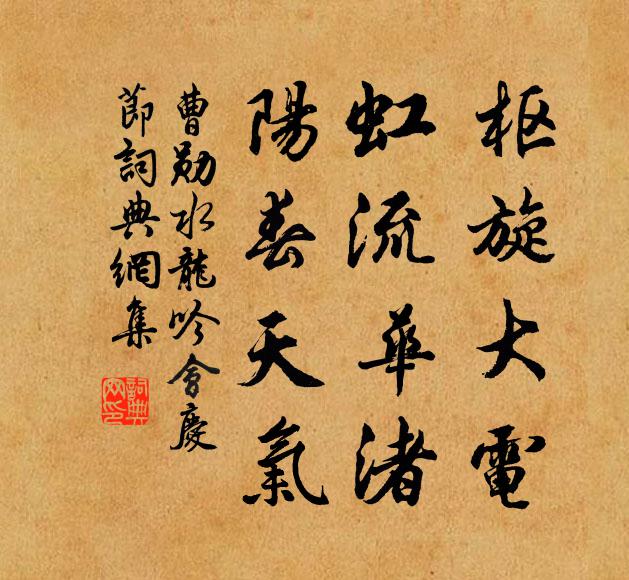 枢旋大電
虹流華渚
陽春天氣
曹勛水龍吟會慶
節詞典網集
詞典網印